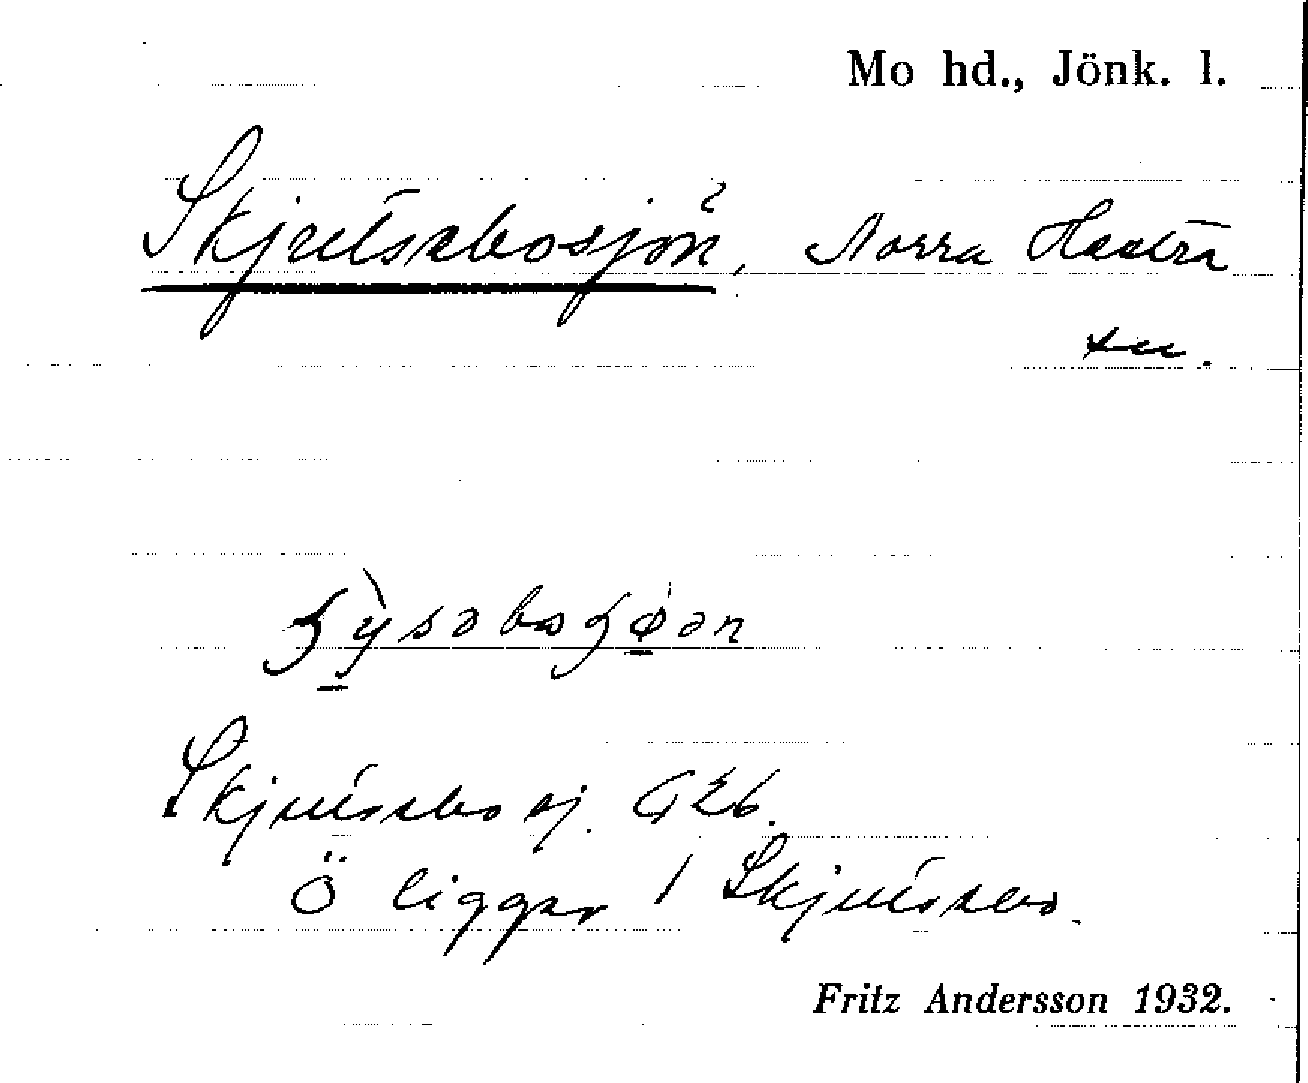 Mo hd., Jönk. l.
Skjutsebosjön, Norra Hestra
sn.
Skjutsebo sj. G26.
Ö ligger / Skjutsebo.
Fritz Andersson 1932.